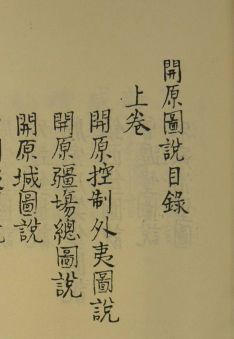 開原圖說目錄
上卷
開原控制外夷圖說
開原疆塲總圖說
開原城圖說